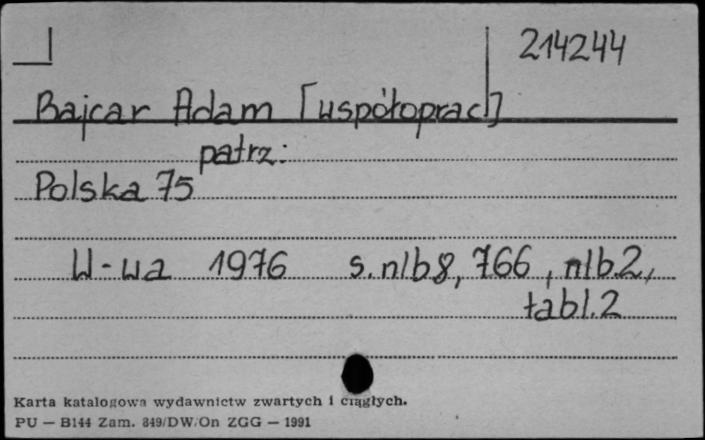 214244
Bajcar Adam [współoprac]
patrz:
Polska 75
W-wa 1976 s. nlb 8, 766, nlb. 2,
tabl. 2
Karta katalogowa wydawnictw zwartych i ciągłych.
PU — B144 Zam. 849/DW/On ZGG — 1991